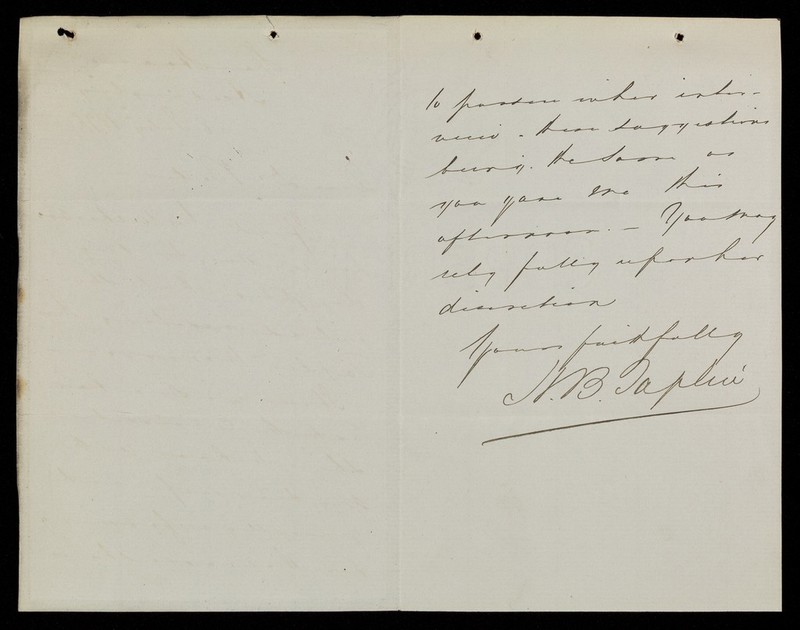 to pursue in her inter-
view - these suggestions
being the same as
you gave me this
afternoon. - You may
rely fully upon her
discretion
Yours faithfully
N. B. Taplin